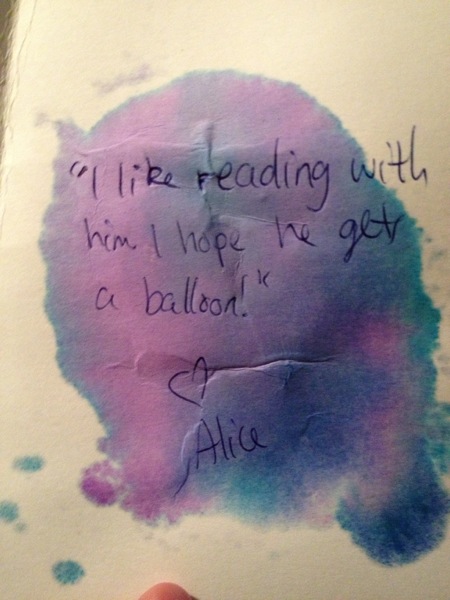 "I like reading with
him I hope he gets
a balloon!"
♡
Alice